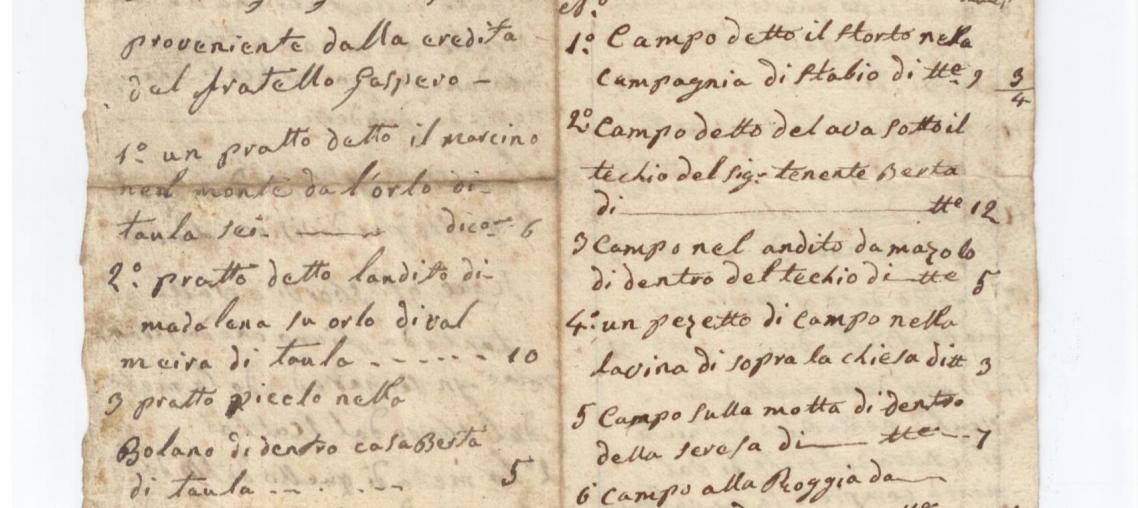 proveniente dalla eredita
del fratello Gaspero -
1º un pratto detto il marcino
nell monte da l'orlo di-
taula sei- ——— dico 6
2º. pratto detto landito di-
madalena su orlo di val
meira di taula - - - - - - 10
3 pratto piccolo nella
Bolano di dentro casa Berta
di taula - - - - - - 5
Nº
1º. Campo detto il storto nela
Campagnia di stabio di tte 9 3/4
2º Campo detto del ava sotto il
techio del sigr tenente Berta
di ——— tte 12
3 Campo nel andito da mazolo
di dentro del techio di — tte 5
4º un pezetto di Campo nella
lavina di sopra la chiesa di tt 3
5 Campo sulla motta di dentro
della seresa di —— tte - - 7
6 Campo alla Roggia da —